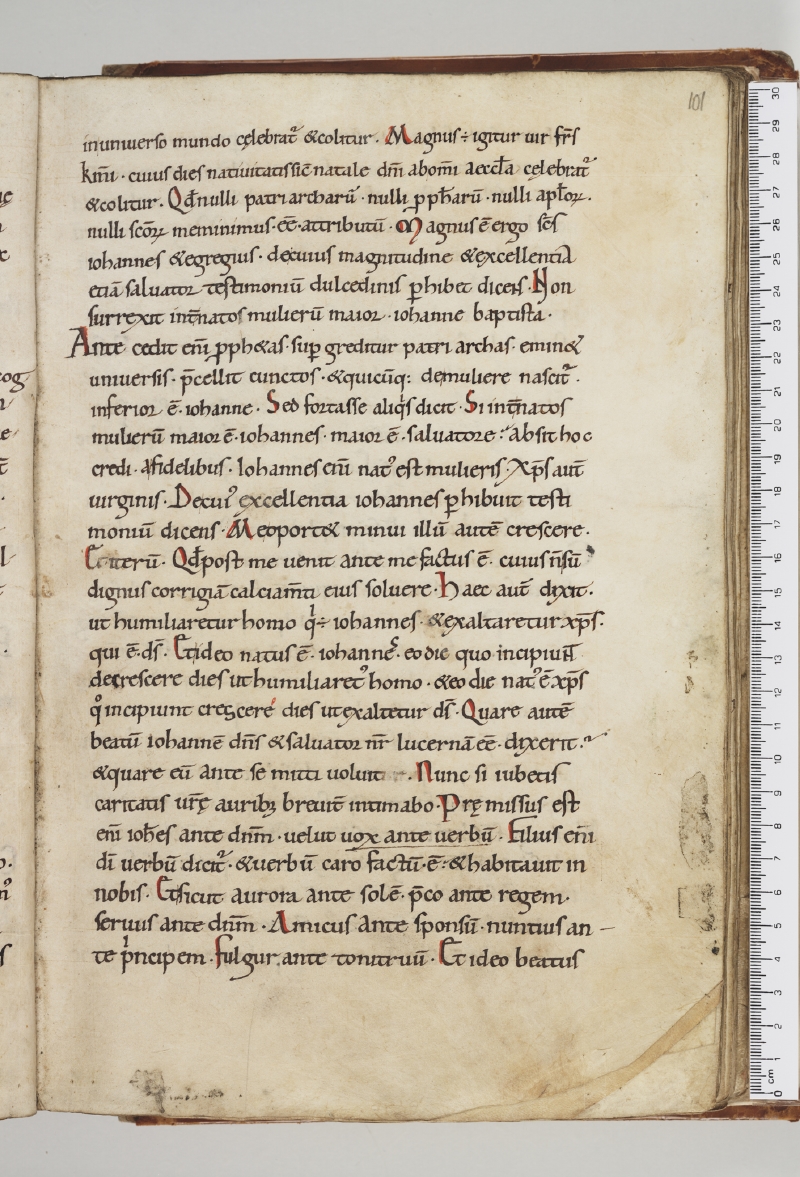 101
inuniuerso mundo cęlebrat᷑ &colitur. Magnus ÷ igitur uir fr̄s
kr̄mi. cuius dies natiuitatis sic̄ natale dn̄i abom̄i aeccl̄a cęlebrat᷑
&colitur. Qd̄ nulli patriarcharū. nulli pph̄arū. nulli apl̄oꝝ.
nulli sc̄oꝝ meminimus. eē. attributū. Magnus ē ergo sc̄s
iohannes &egregius. decuius magnitudine &excellentia
etiā saluator testimoniū dulcedinis ꝑhibet dicens. Non
surrexit int̄natos mulierū maior. iohanne baptista.
Ante cedit eni̅ ꝓph&as. suꝑ greditur patri archas. emin&
uniuersis. p̄cellit cunctos. &quicūq; demuliere nascit᷑.
inferior ē. iohanne. Sed fortasse aliq̇s dicit. Si int̄natos
mulierū maior ē. iohannes. maior ē. saluatore? Absit hoc
credi. afidelibus. Iohannes eni̅ nat᾽ est mulieris. Xp̄s aut̄
uirginis. Decui᾽ excellentia iohannes ꝑhibuit testi
moniū dicens. Meoport& minui illū autē crescere.
Et iterū. Qd̄ post me uenit ante me factus ē. cuius n̄ sū
dignus corrigiā calciam̄ti eius soluere. Haec aut̄ dixit.
ut humiliaretur homo q̇ ÷ iohannes. &exaltaretur xp̄s.
qui ē. ds̄. Et ideo natus ē. iohannes. eo die quo incipiun̄t
decrescere dies ut humiliaret᾽ homo. &eo die nat᾽ ē xp̄s
q̊ incipiunt crescere dies ut exaltetur ds̄. Quare autē
beatū iohannē dn̄s &saluator nr̄ lucernā eē. dixerit.
&quare eū ante se mitti uoluit. Nunc si iubetis
caritatis urę̄ auribꝫ breuit̄ intimabo. Pręmissus est
eni̅ ioh̄es ante dn̄m. uelut uox ante uerbū. Filius eni̅
di̅ uerbū dicit᷑. &uerbū caro factū. ē. &habitauit in
nobis. Et sicut aurora ante solē. p̄co ante regem.
seruus ante dn̄m. Amicus ante sponsū. nuntius an-
te pͥncipem. fulgur ante tonitruū. Et ideo beatus